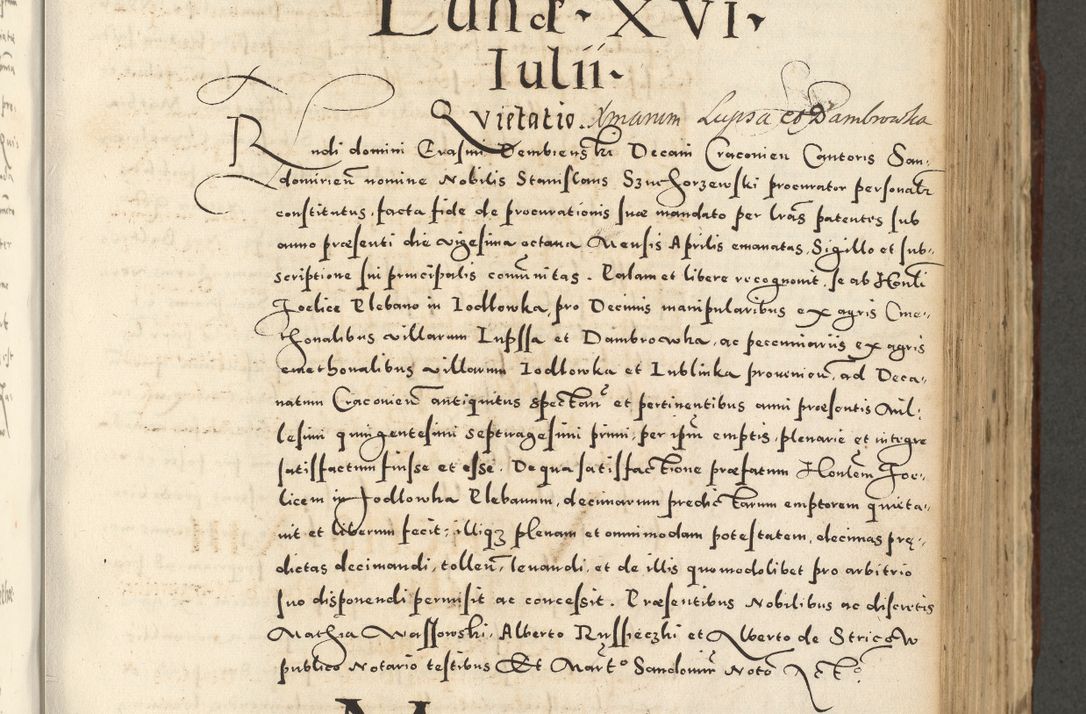 Lunæ · XVI ·
Iulii ·
Quietatio Xmarum Lupsa et Dambrowska
Rndi domini Erasmi Dembienski Decani Cracouien Cantoris San-
domirien nomine Nobilis Stanislaus Szuchorzewski procurator personalr
constitutus, facta fide de procurationis suæ mandato per lras patentes sub
anno præsenti die vigesima octaua Mensis Aprilis emanatas, Sigillo et sub-
scriptione sui principalis comunitas. Palam et libere recognouit, se ab Honli
Foelice Plebano in Iodlowka, pro Decimis manipularibus ex agris Cme-
thonalibus villarum Lupssa et Dambrowka, ac pecuniariis ex agris
cmethonalibus villarum Iodlowka et Lublinka prouenien, ad Deca-
natum Cracouien antiquitus spectan et pertinentibus anni præsentis Mil-
lesimi quingentesimi septuagesimi primi, per ipm emptis, plenarie et integre
satisfactum fuisse et esse. De qua satisfactione præfatum Honlem Foe-
licem in Iodlowka Plebanum, decimarum predictarum emptorem quieta-
uit et liberum fecit; illiq3 plenam et omnimodam potestatem, decimas prę-
dictas decimandi, tollen, leuandi, et de illis quomodolibet pro arbitrio
suo disponendi permisit ac concessit. Præsentibus Nobilibus ac discretis
Mathia Wassowski, Alberto Russieczki et Alberto de Stricow
publico Notario testibus Et Mart° Sandomir Noto